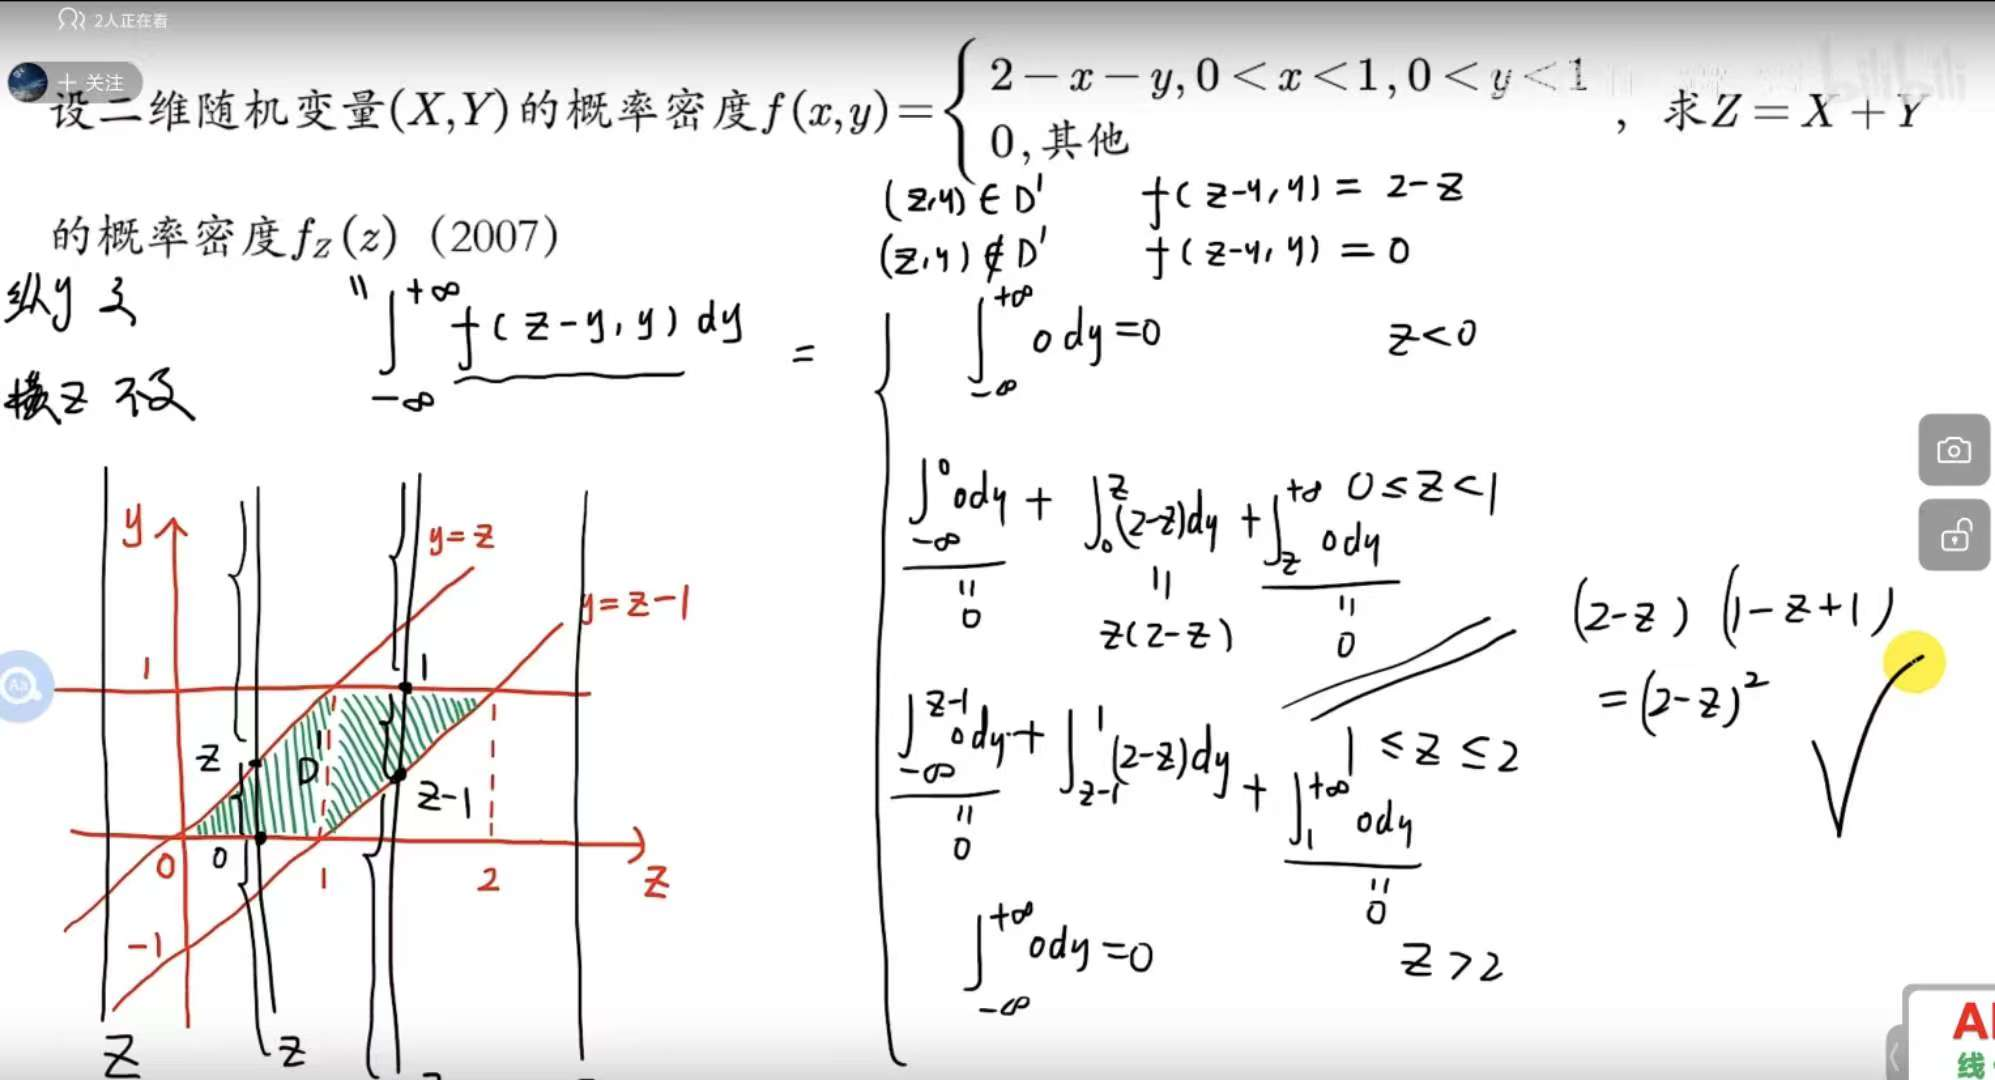 2人正在看
+ 关注
bilibili
设二维随机变量(X,Y)的概率密度f(x,y)={2-x-y,0<x<1,0<y<1
0,其他
,求Z=X+Y
的概率密度f_Z(z)(2007)
(z,y)∈D' f(z-y,y)=2-z
(z,y)∉D' f(z-y,y)=0
纵y
横z 不变
"∫_{-∞}^{+∞} f(z-y,y)dy =
∫_{-∞}^{+∞} 0dy=0 z<0
∫_{-∞}^{0} 0dy + ∫_{0}^{z} (2-z)dy + ∫_{z}^{+∞} 0dy 0≤z<1
=0
=z(2-z)
=0
(2-z)(1-z+1)
=(2-z)²
∫_{-∞}^{z-1} 0dy + ∫_{z-1}^{1} (2-z)dy + ∫_{1}^{+∞} 0dy 1≤z≤2
=0
=0
∫_{-∞}^{+∞} 0dy=0 z>2
y
y=z
y=z-1
1
1
z
D'
z-1
0
0
1
2
z
-1
z
z
Aa
线